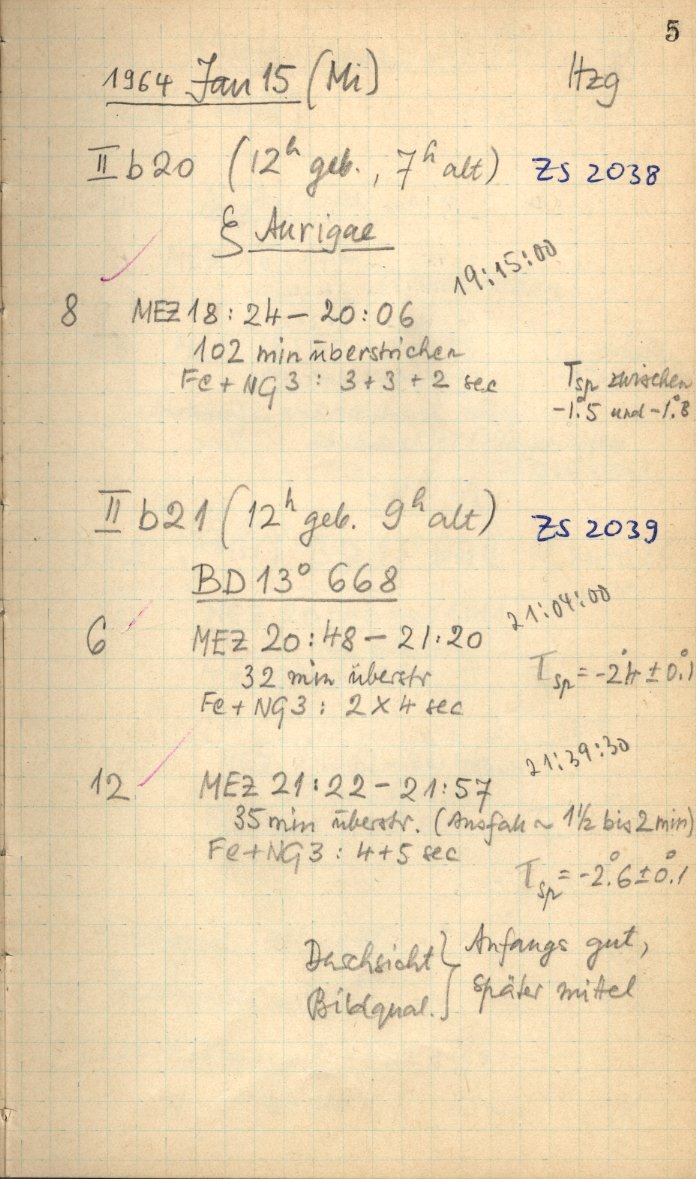 5
1964 Jan 15 (Mi) Hzg
II b20 (12h geb., 7h alt) ZS 2038
ξ Aurigae
19:15:00
8 MEZ 18:24 – 20:06
102 min überstrichen
Fe + NG3 : 3 + 3 + 2 sec
Tsp zwischen
-1°.5 und -1°.8
II b21 (12h geb. 9h alt) ZS 2039
BD 13° 668
21:04:00
6 MEZ 20:48 – 21:20
32 min überstr
Tsp = -2°.4 ± 0°.1
Fe + NG3 : 2 x 4 sec
21:39:30
12 MEZ 21:22 – 21:57
35 min überstr. (Ausfall ~ 1½ bis 2 min)
Fe + NG3 : 4 + 5 sec
Tsp = -2°.6 ± 0°.1
Duchsicht } Anfangs gut,
Bildqual. } später mittel